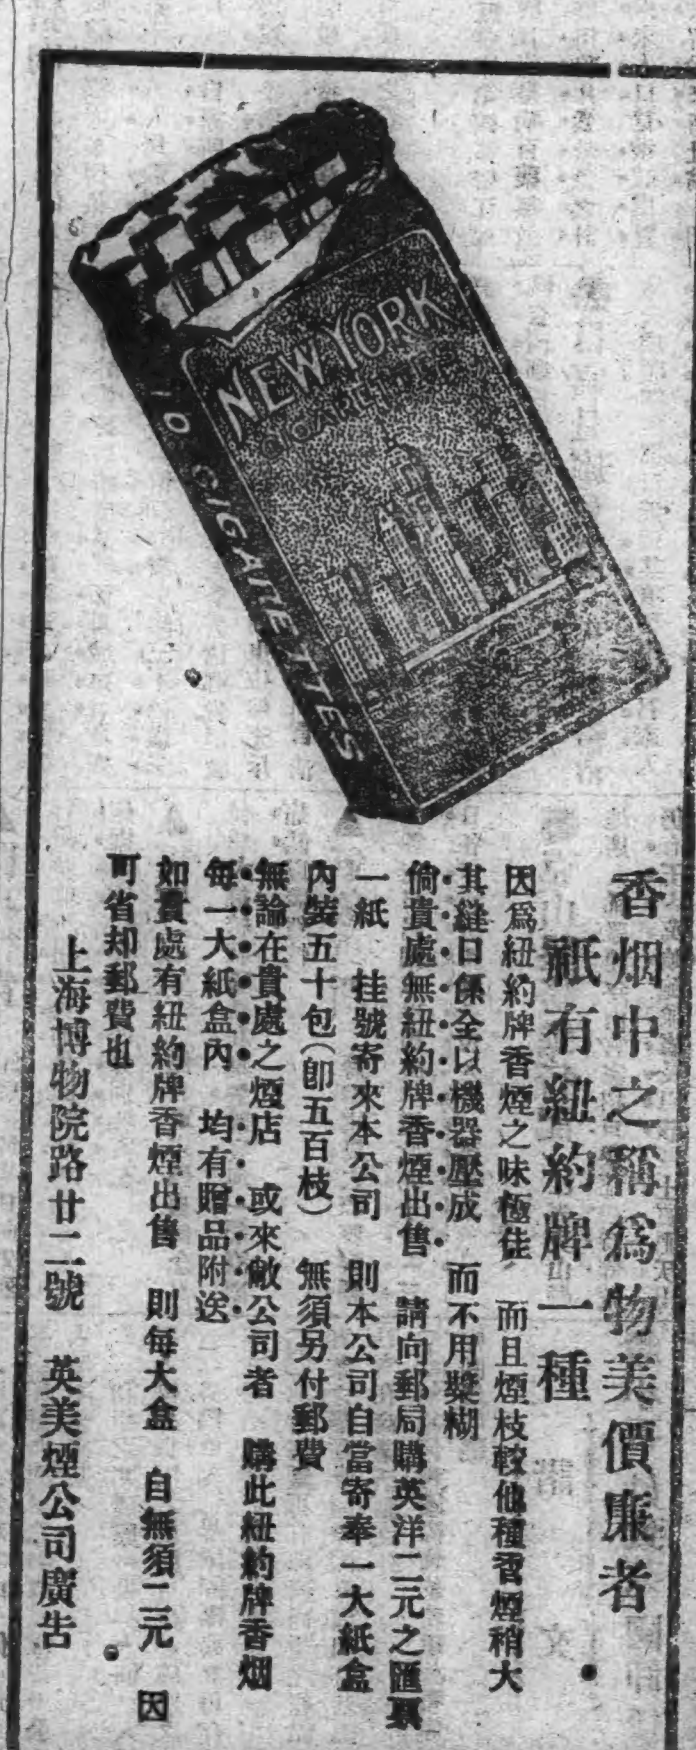 NEW YORK
CIGARETTES
10 CIGARETTES
香烟中之稱爲物美價廉者
祇有紐約牌一種
因爲紐約牌香煙之味極佳 而且煙枝較他種香煙稍大
其縫口係全以機器壓成 而不用漿糊
倘貴處無紐約牌香煙出售 請向郵局購英洋二元之匯票
一紙 挂號寄來本公司 則本公司自當寄奉一大紙盒
內裝五十包(卽五百枝) 無須另付郵費
無論在貴處之煙店 或來敝公司者 購此紐約牌香烟
每一大紙盒內 均有贈品附送
如貴處有紐約牌香煙出售 則每大盒 自無須二元 因
可省却郵費也
上海博物院路廿二號 英美煙公司廣告